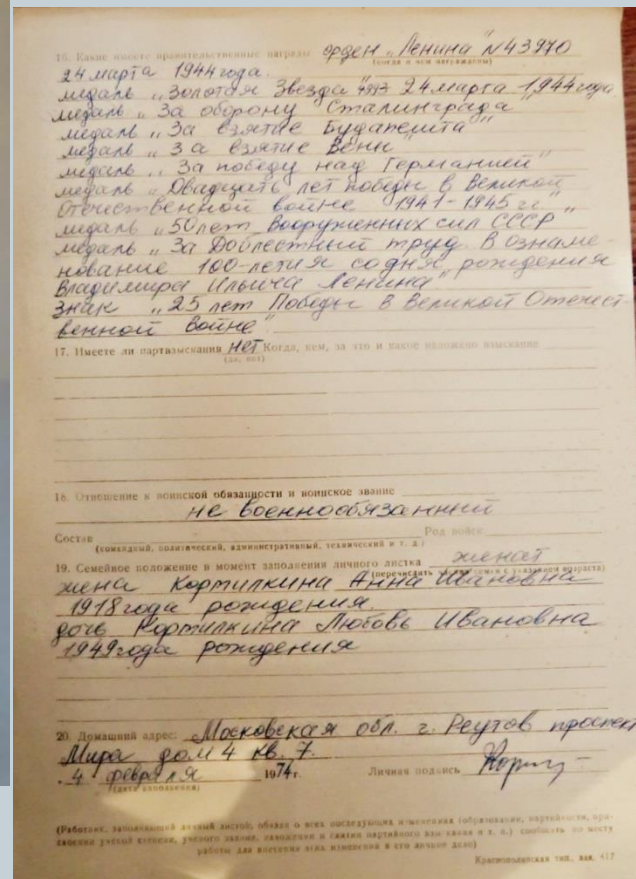 16. Какие имеете правительственные награды орден „Ленина" N 43970
(когда и чем награждены)
24 марта 1944 года.
медаль „Золотая Звезда" 24 марта 1944 года
медаль „За оборону Сталинграда"
медаль „За взятие Будапешта"
медаль „За взятие Вены"
медаль „За победу над Германией"
медаль „Двадцать лет победы в Великой
Отечественной войне 1941-1945 гг."
медаль „50 лет Вооруженных сил СССР
медаль „За Доблестный труд. В ознаме-
нование 100-летия со дня рождения
Владимира Ильича Ленина"
Знак „25 лет Победы в Великой Отечест-
венной войне"
17. Имеете ли партвзыскания нет Когда, кем, за что и какое наложено взыскание
(да, нет)
18. Отношение к воинской обязанности и воинское звание
не военнообязанный
Состав Род войск
(командный, политический, административный, технический и т. д.)
19. Семейное положение в момент заполнения личного листка женат
(перечислить членов семьи с указанием возраста)
жена Кортилкина Анна Ивановна
1918 года рождения.
дочь Кортилкина Любовь Ивановна
1949 года рождения
20. Домашний адрес: Московская обл. г. Реутов проспект
Мира дом 4 кв. 7.
4 февраля 1974 г. Личная подпись
(дата заполнения)
(Работник, заполняющий личный листок, обязан о всех последующих изменениях (образовании, партийности, при-
своении ученой степени, ученого звания, наложении и снятии партийного взыскания и т. п.) сообщить по месту
работы для внесения этих изменений в его личное дело)
Краснополянская тип., зак. 417